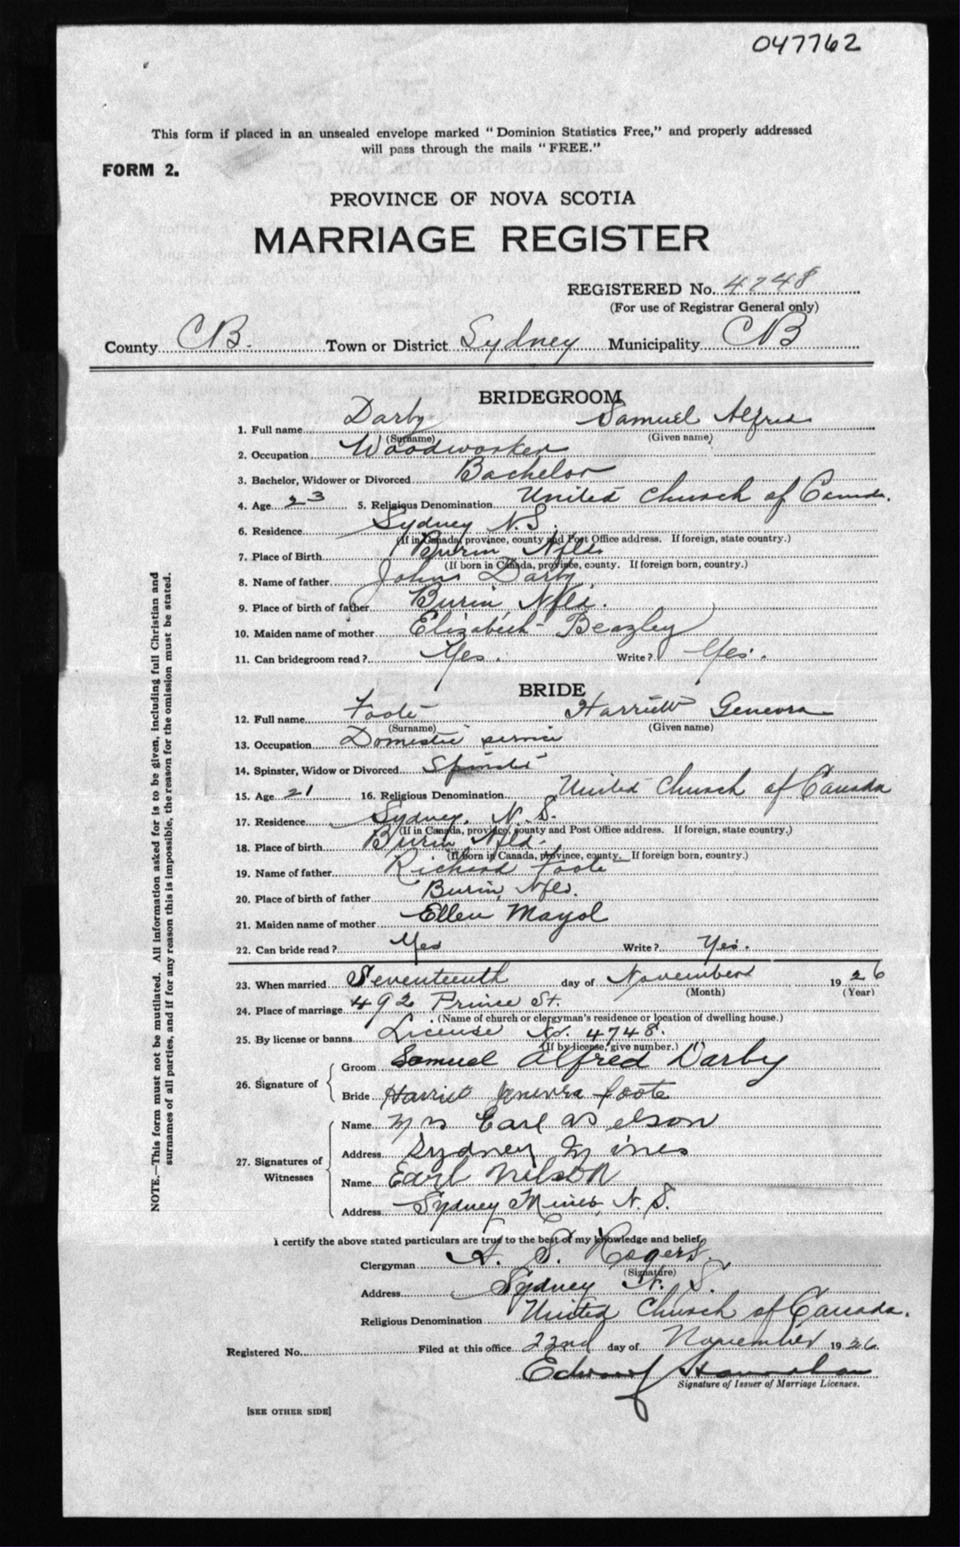 047762
This form if placed in an unsealed envelope marked "Dominion Statistics Free," and properly addressed
will pass through the mails "FREE."
FORM 2.
PROVINCE OF NOVA SCOTIA
MARRIAGE REGISTER
REGISTERED No. 4748
(For use of Registrar General only)
County CB. Town or District Sydney Municipality CB
BRIDEGROOM
1. Full name Darby Samuel Alfred
(Surname) (Given name)
2. Occupation Woodworker
3. Bachelor, Widower or Divorced Bachelor
4. Age 23 5. Religious Denomination United Church of Canada.
6. Residence Sydney N.S.
(If in Canada, province, county and Post Office address. If foreign, state country.)
7. Place of Birth Burin Nfld.
(If born in Canada, province, county. If foreign born, country.)
8. Name of father John Darby
9. Place of birth of father Burin Nfld.
10. Maiden name of mother Elizabeth Beazley
11. Can bridegroom read? Yes. Write? Yes.
BRIDE
12. Full name Foote Harriett Genevra
(Surname) (Given name)
13. Occupation Domestic service
14. Spinster, Widow or Divorced
15. Age 21 16. Religious Denomination United Church of Canada
17. Residence Sydney, N.S.
(If in Canada, province, county and Post Office address. If foreign, state country.)
18. Place of birth Burin Nfld.
(If born in Canada, province, county. If foreign born, country.)
19. Name of father Richard Foote
20. Place of birth of father Burin, Nfld.
21. Maiden name of mother Ellen Mayol
22. Can bride read? Yes Write? Yes.
23. When married Seventeenth day of November 1926
(Month) (Year)
24. Place of marriage 492 Prince St.
(Name of church or clergyman's residence or location of dwelling house.)
25. By license or banns License No. 4748.
(If by license, give number.)
26. Signature of
Groom Samuel Alfred Darby
Bride Harriet Genevra Foote
27. Signatures of Witnesses
Name Mrs Earl Nelson
Address Sydney Mines
Name Earl Nelson
Address Sydney Mines, N.S.
I certify the above stated particulars are true to the best of my knowledge and belief,
Clergyman A. S. Rogers.
(Signature)
Address Sydney N. S.
Religious Denomination United Church of Canada.
Registered No. Filed at this office 22nd day of November 1926.
Edward Hanrahan
Signature of Issuer of Marriage Licenses.
[SEE OTHER SIDE]
NOTE.—This form must not be mutilated. All information asked for is to be given, including full Christian and
surnames of all parties, and if for any reason this is impossible, the reason for the omission must be stated.